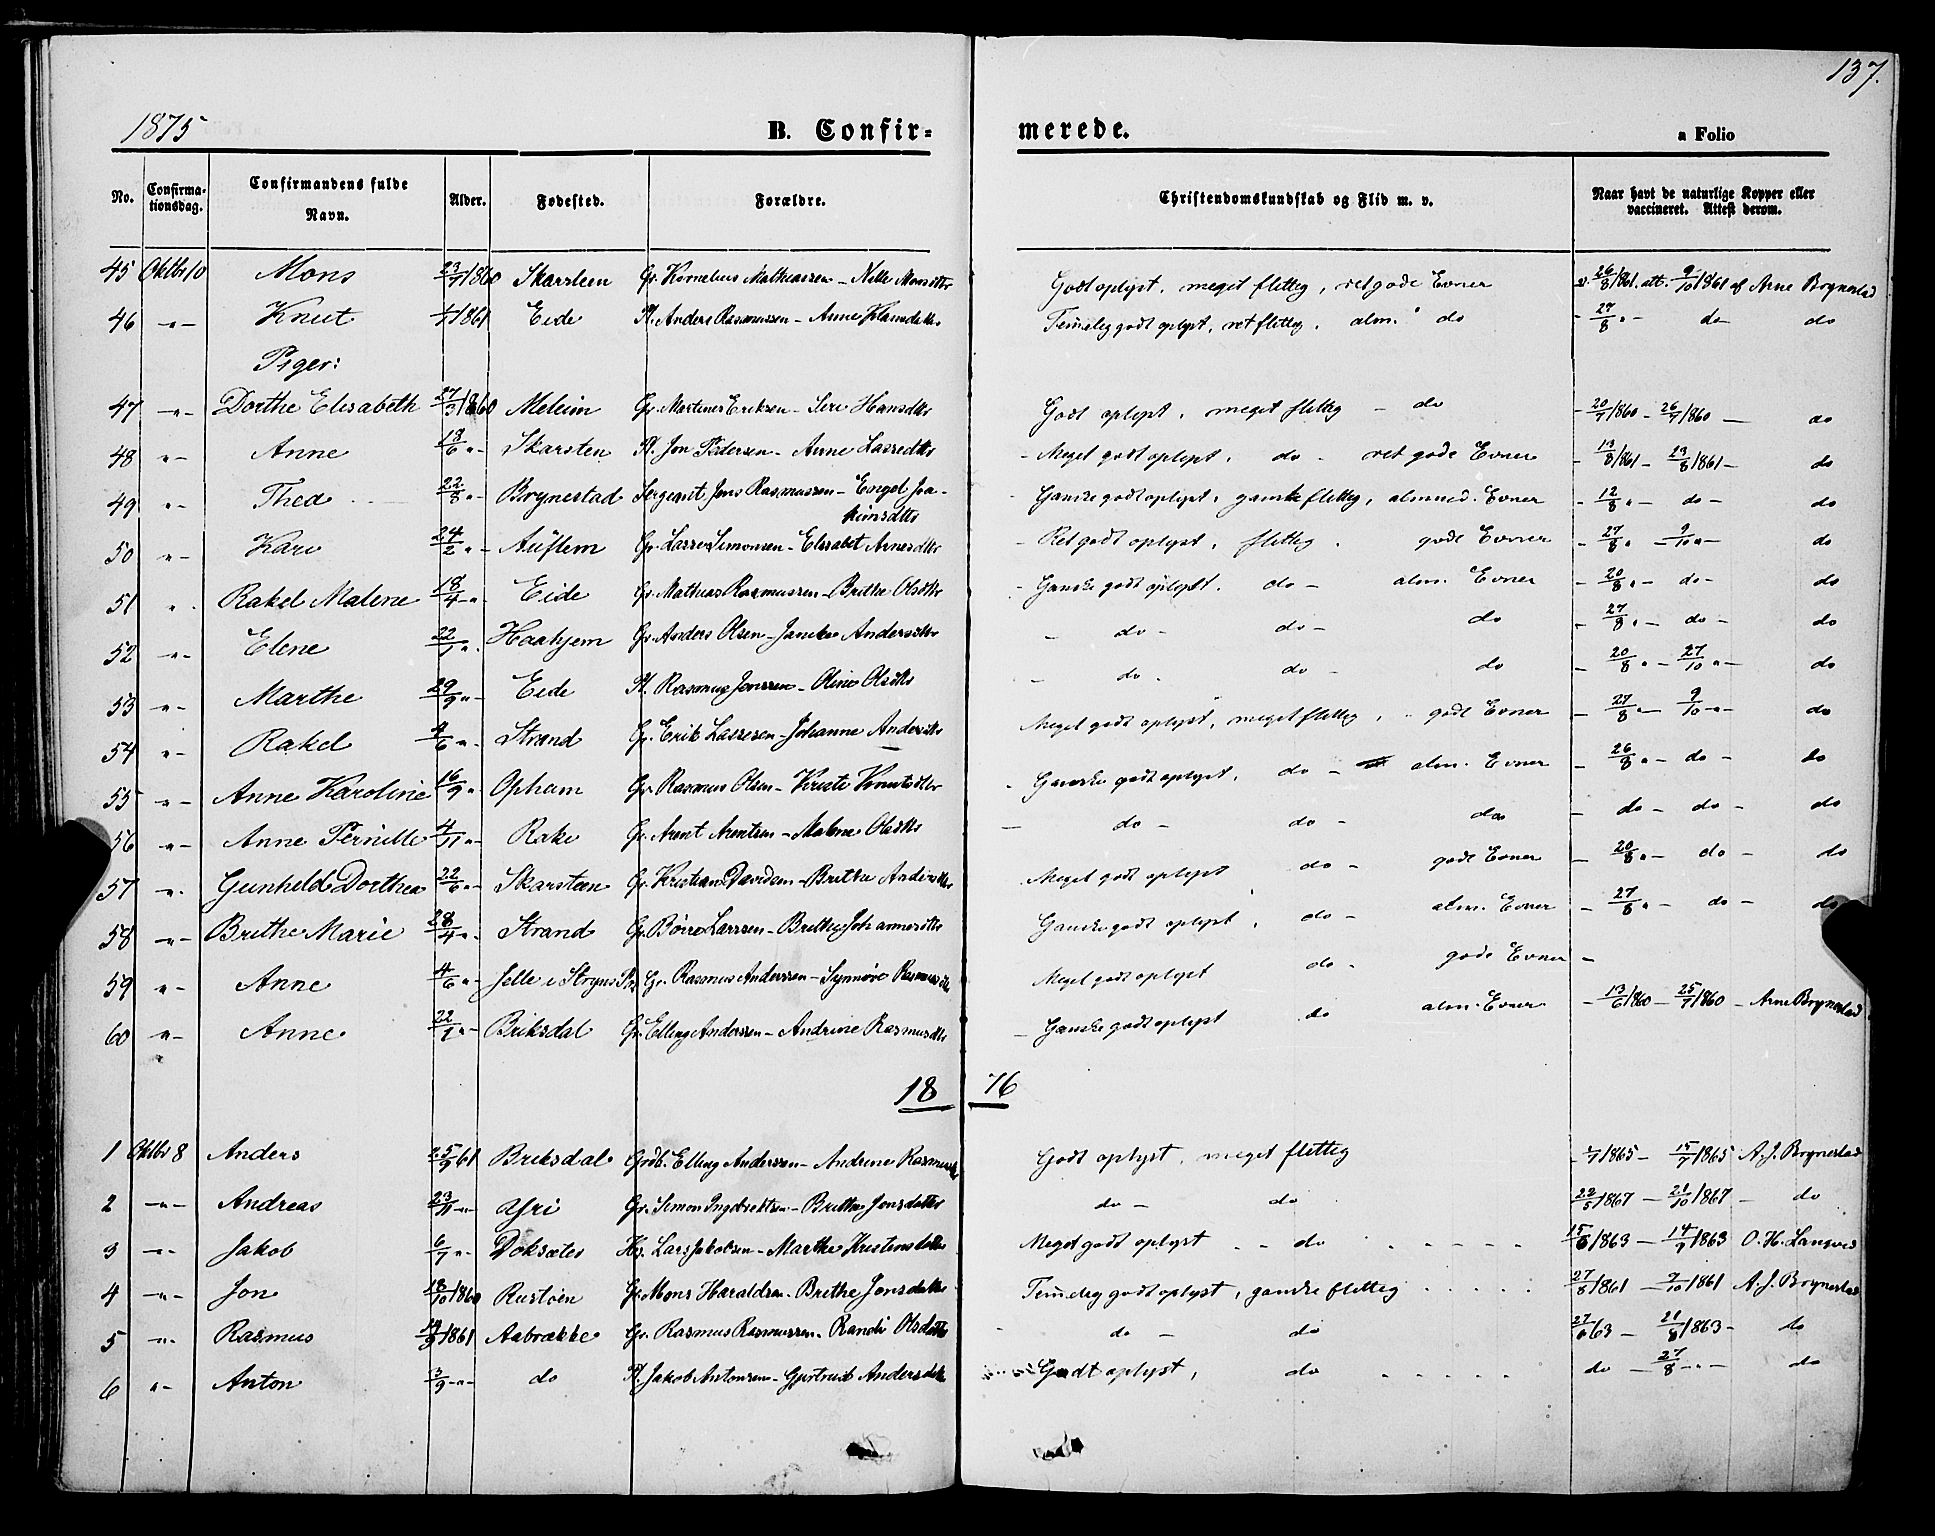 137.
1875 B. Confir- merede. a Folio
No. Confirma-tionsdag. Confirmandens fulde Navn. Alder. Fødested. Forældre. Christendomskundskab og Flid m. v. Naar havt de naturlige Kopper eller vaccineret. Attest derom.
45 Oktbr 10 Mons 23/7 1860 Skarsteen Gr. Kornelius Mathiassen - Monsdtr Godt oplyst, meget flittig, ret gode Evner v. 26/8 1861 att. 9/10 1861 af Arne Brynestad
46 -"- Knut 1861 Eide Pl. Anders Rasmussen - Anne Temelig godt oplyst, ret flittig, alm. do - 27/8 " - do do
Piger:
47 -"- Dorthe Elisabeth 27/3 1860 Meleim Gr. Martinus Eriksen - Siri Hansdtr Godt oplyst, meget flittig - do - 20/7 1860 - 26/7 1860 - do
48 "- Anne 18/6 "- Skarsten Pl. Jon Pedersen - Anne Lassedtr - Meget godt oplyst, do - ret gode Evner - 13/8 1861 - 23/8 1861 - do
49 "- Thea 22/8 "- Brynestad Sergeant Jens Rasmussen - Engel Joa-
kimsdtr
- Ganske godt oplyst, ganske flittig, almind. Evner - 12/8 " - do - do
50 "- Kari 24/2 "- Auflem Gr. Lasse Simonsen - Elisabet Arnesdtr - Ret godt oplyst, flittig. gode Evner - 27/8 " - 9/10 "- do
51 " Rakel Malene 18/4 -"- Eide Gr. Mathias Rasmussen - Brithe Olsdtr - Ganske godt oplyst. do - alm. Evner - 20/8 " - do - do
52 -"- Elene 22/1 ". Haahjem Gr. Anders Olsen - Janike Andersdtr - do - do - do - 27/8 " - do - do
53 -"- Marthe 29/9 "- Eide Pl. Rasmus Jonssen - Oline Olsdtr - do - do - do - 20/8 " - 27/10 "- do
54 "- Rakel 9/6 "- Strand Gr. Erik Lassesen - Johanne Andersdtr Meget godt oplyst, meget flittig, gode Evner - 27/8 "- 9/10 "- do
55 -"- Anne Karoline 16/9 " Opheim Gr. Rasmus Olsen - Kristi Knutsdtr - Ganske godt oplyst, do - alm. Evner - 26/8 "- do - do
56 -"- Anne Pernille 4/11 "- Rake Gr. Arent Arentsen - Malene Olsdtr - do - do - do - do - do - do
57 -". Gunhild Dorthea 22/6 "- Skarsteen Gr. Kristian Davidsen - Brithe Andersdtr - Meget godt oplyst do - gode Evner - 20/8 "- do - do
58 -"- Brithe Marie 28/4 "- Strand Gr. Børre Larssen - Brithe Johannesdtr Ganske godt oplyst, do - alm. Evner - 27/8 " - do - do
59 "- Anne 4/6 "- Jelle i Stryns Gr. Rasmus Anderssen - Synnøve Meget godt oplyst do - gode Evner -
60 "- Anne "- Briksdal Gr. Elling Anderssen - Andrine Rasmusdtr - Ganske godt oplyst do alm. Evner - 13/6 1860 - 25/7 1860 - Arne Brynestad
18 76
1 Oktbr 8 Anders 25/9 61 Briksdal Grdb. Elling Anderssen - Andrine Godt oplyst, meget flittig 1865 - 15/7 1865 A. J. Brynestad
2 -"- Andreas 23/11 "- Yri Gr. Simon Ingebrektsen - Brithe Jonsdatter do - do 22/5 1867 - 21/10 1867 - do
3 -"- Jakob 6/7 "- Doksæter Lars Jakobsen - Marthe Kristensdatter Meget godt oplyst - do 1863 - 14/9 1863 O. H. Langvid
4 -"- Jon 18/10 1860 Rustøen Gr. Mons Haraldsen - Brithe Jonsdatter Temelig godt oplyst, ganske flittig 27/8 1861 - 9/10 1861 A. J. Brynestad
5 -"- Rasmus 1861 Aabrække Gr. Rasmus Rasmussen - Randi Olsdatter - do - do 63 - 21/8 1863 - do
6 "- Anton 3/9 -"- do Pl. Jakob Antonsen - Gjertrud Andersdatter Godt oplyst, do do - 27/8 -"- do